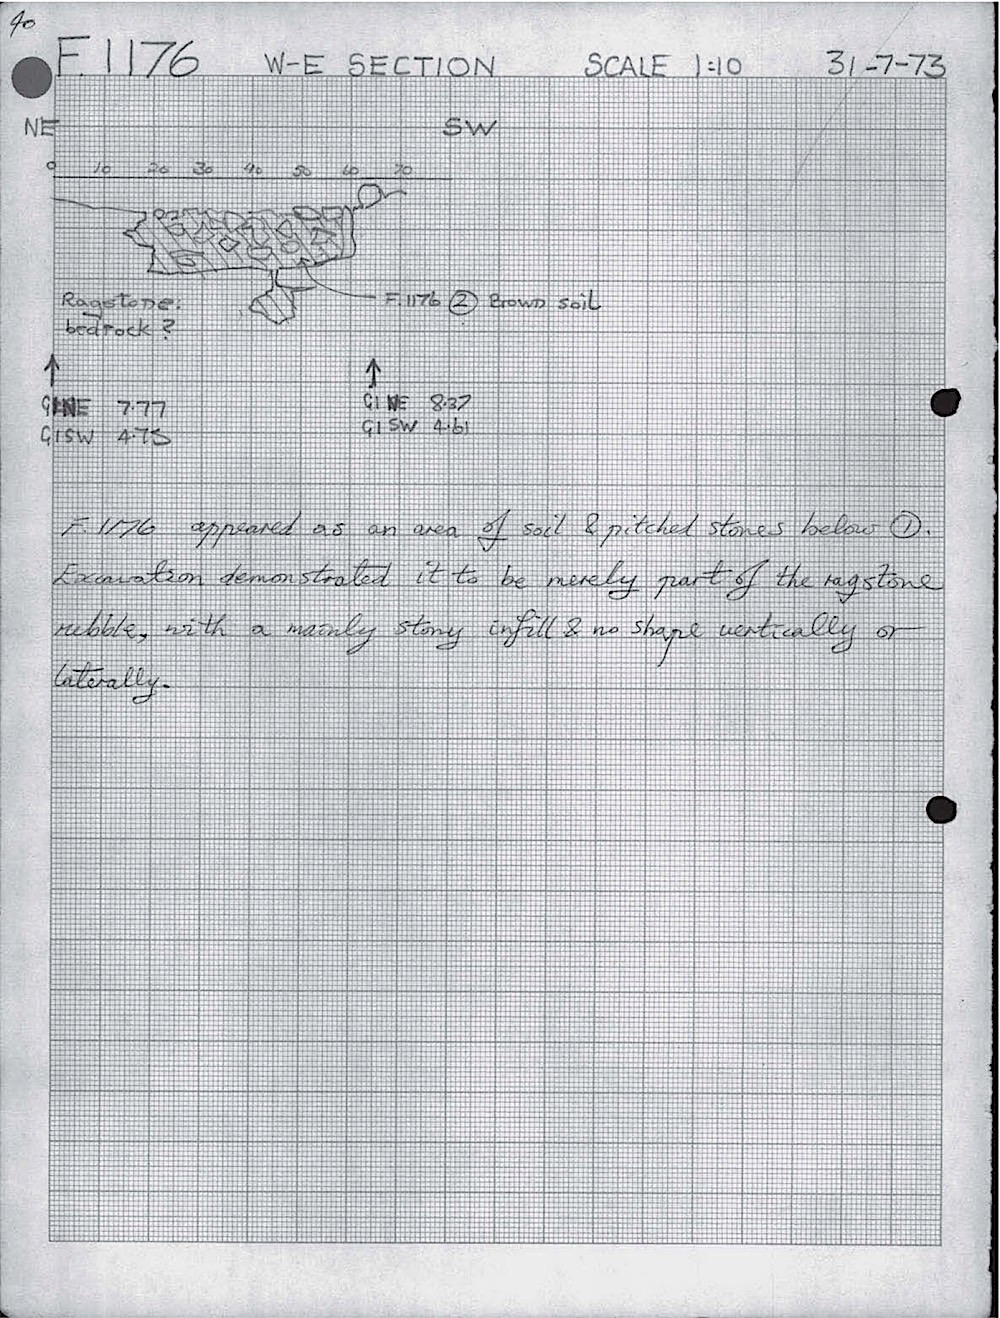 40
F.1176 W-E SECTION SCALE 1:10 31-7-73
NE SW
0 10 20 30 40 50 60 70
F.1176 ② Brown soil
Ragstone:
bedrock?
G1NE 7.77
G1SW 4.75
G1 NE 8.37
G1 SW 4.61
F.1176 appeared as an area of soil & pitched stones below ①.
Excavation demonstrated it to be merely part of the ragstone
rubble, with a mainly stony infill & no shape vertically or
laterally.